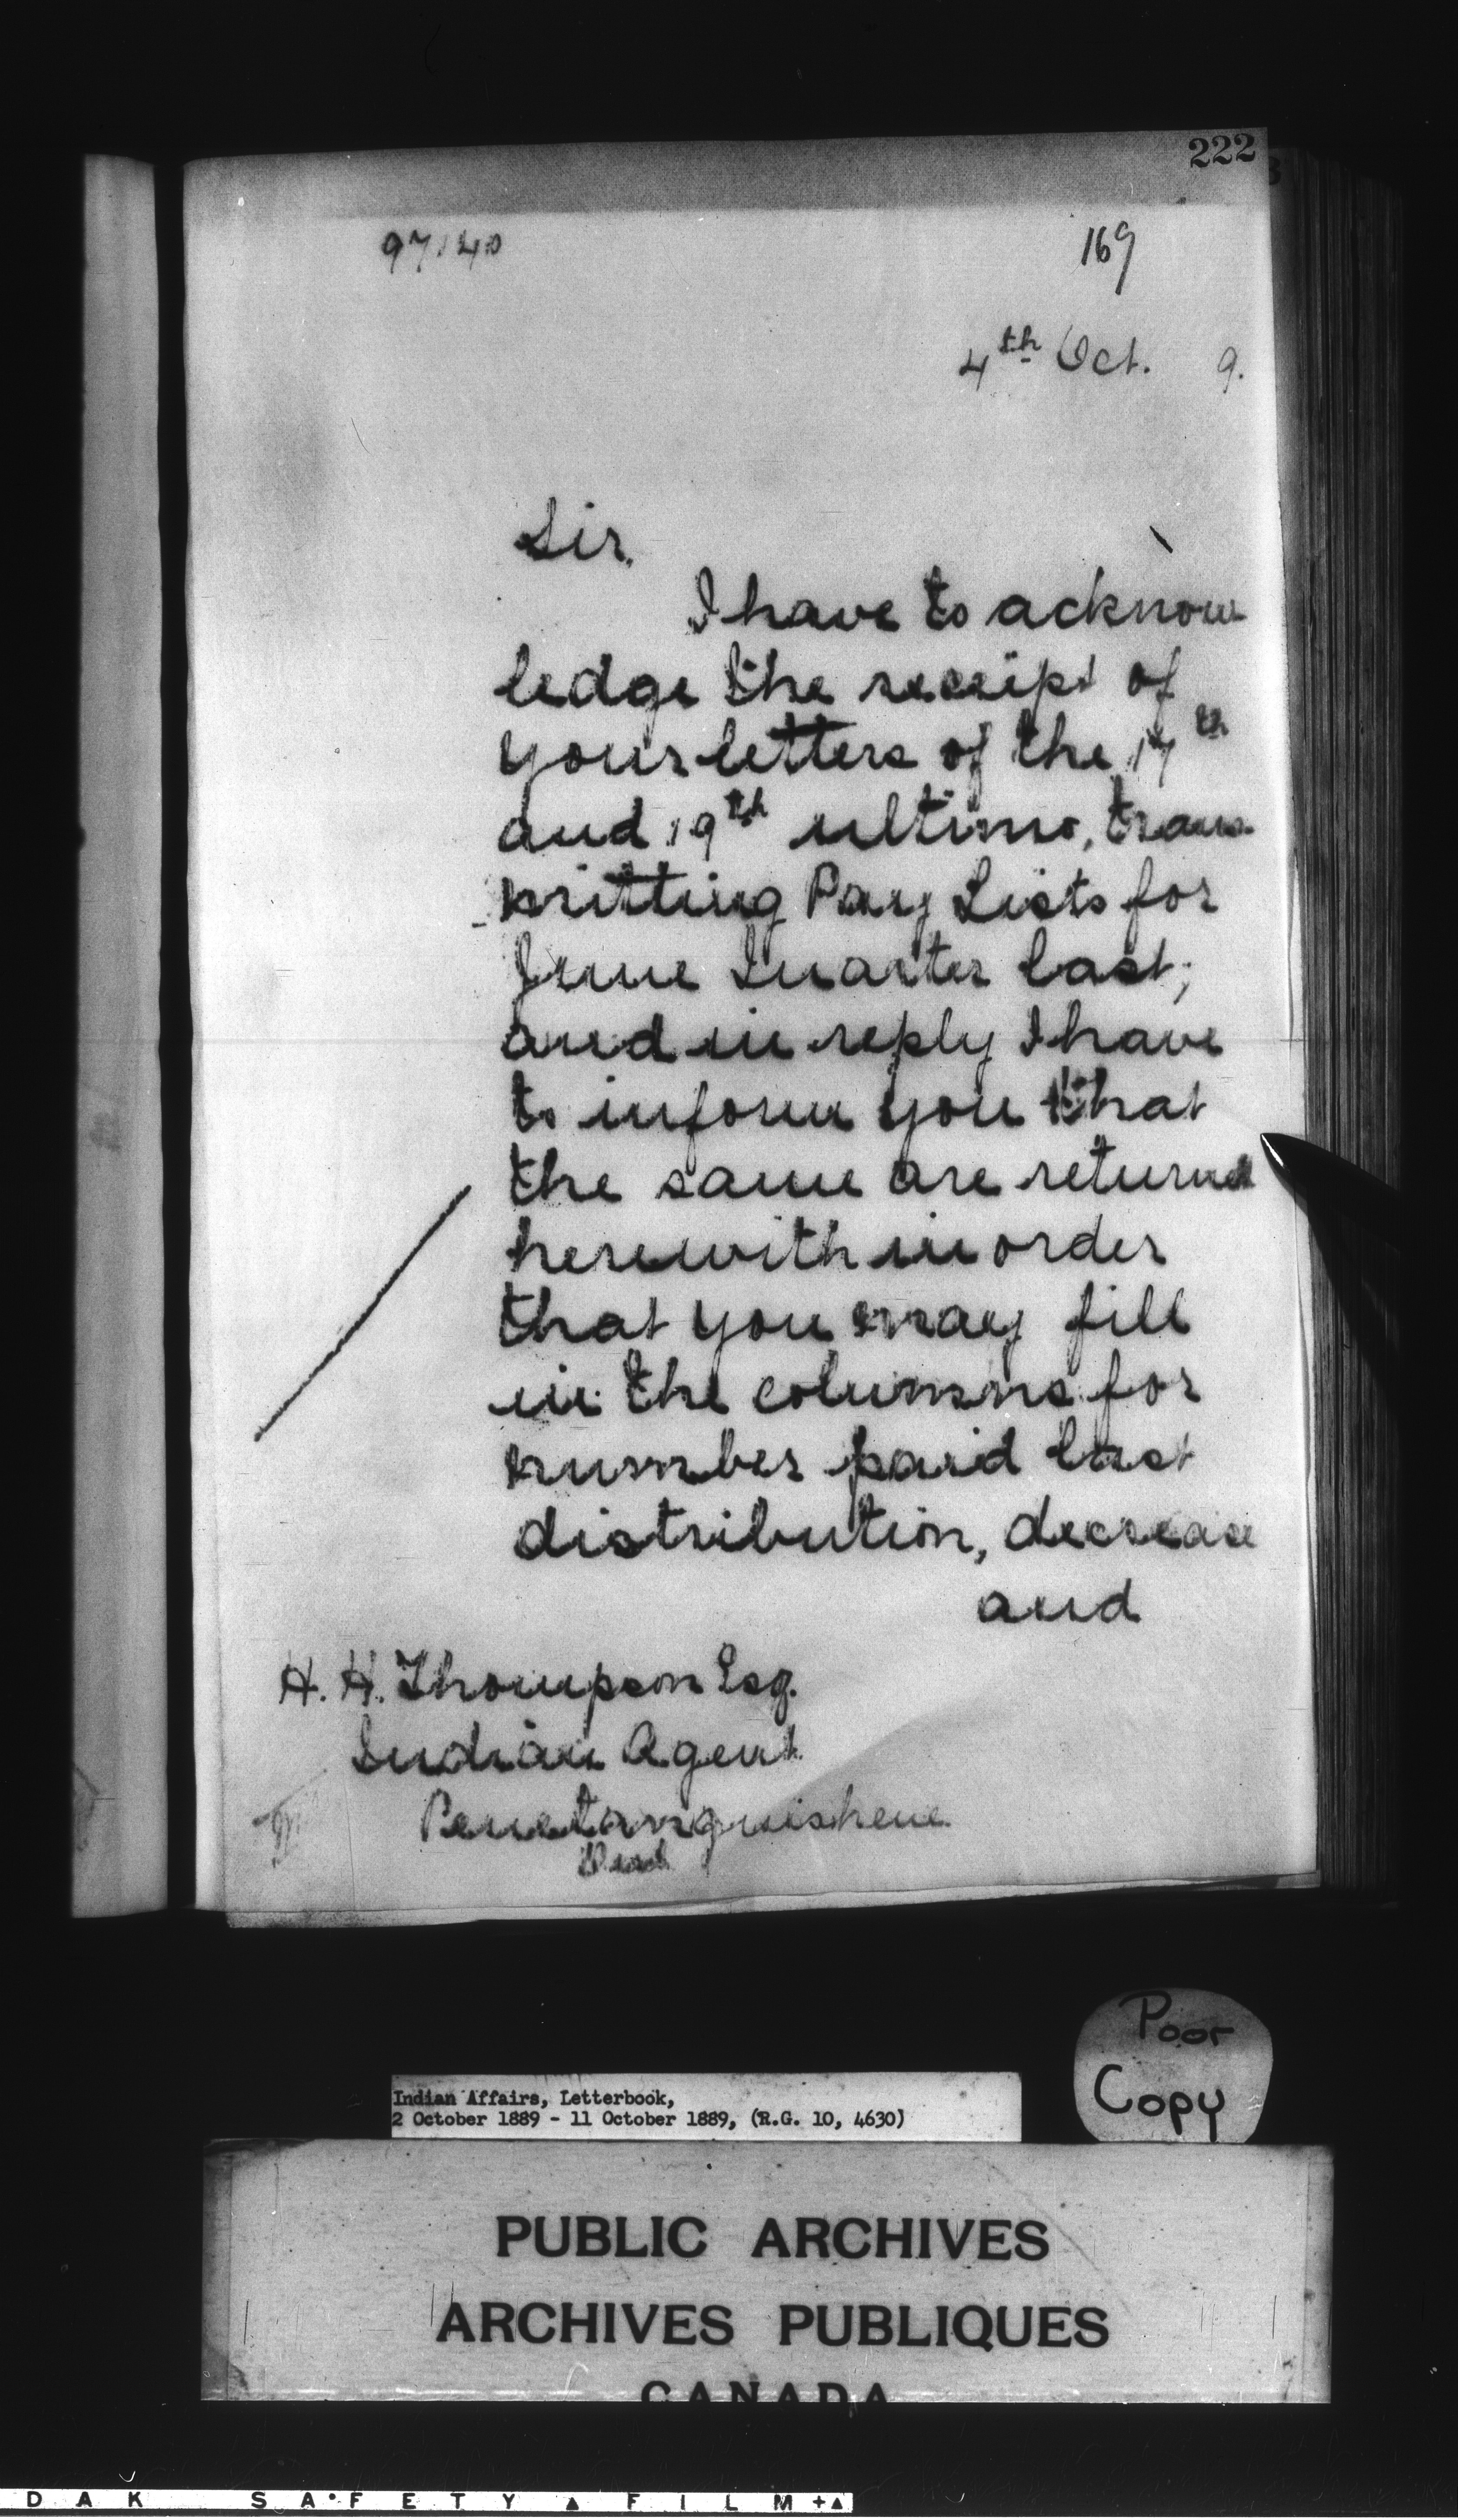 222
97140
169
4th Oct. 9.
Sir,
I have to acknow
ledge the receipt of
your letters of the 17th
and 19th ultimo, trans
mitting Pay Lists for
June Quarter last;
and in reply I have
to inform you that
the same are returned
herewith in order
that you may fill
in the columns for
number paid last
distribution, decrease
and
H. H. Thompson Esq.
Indian Agent
Penetanguishene
Ont
Poor
Copy
Indian Affairs, Letterbook,
2 October 1889 - 11 October 1889, (R.G. 10, 4630)
PUBLIC ARCHIVES
ARCHIVES PUBLIQUES
CANADA
DAK SAFETY FILM